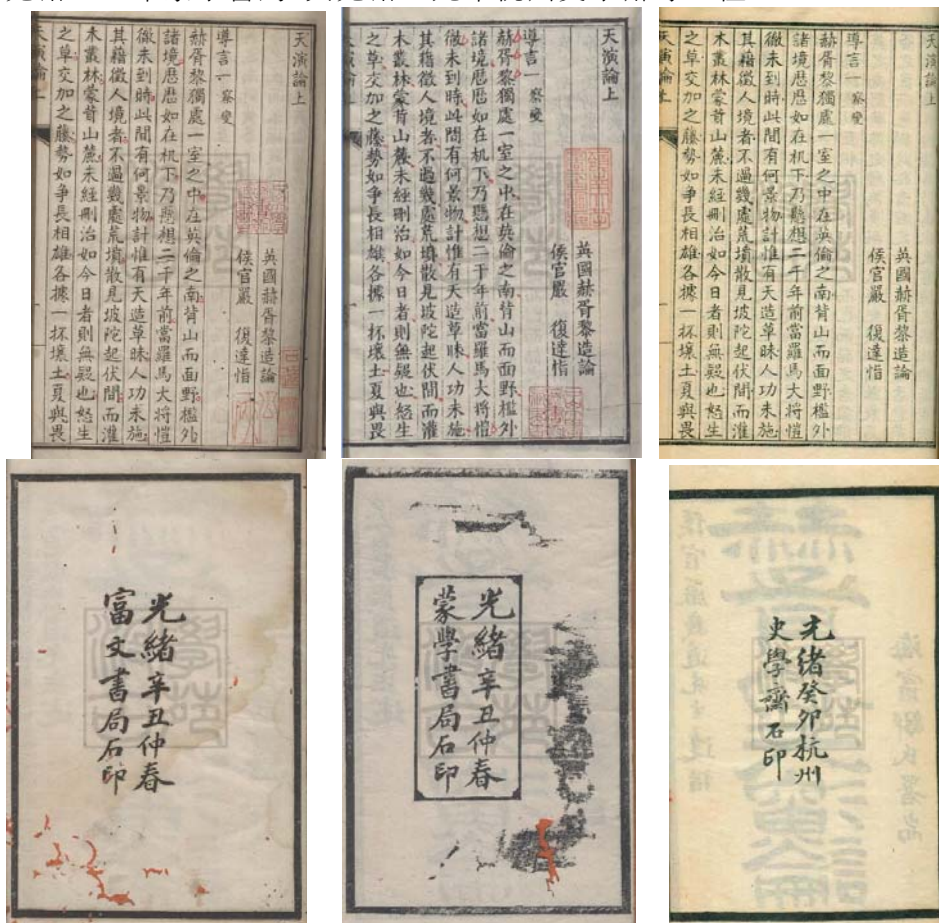 天演論上
英國赫胥黎造論
侯官嚴 復達恉
導言一 察變
赫胥黎獨處一室之中在英倫之南背山而面野檻外
諸境歷歷如在机下乃懸想二千年前當羅馬大將愷
徹未到時此間有何景物計惟有天造草昧人功未施
其藉徵人境者不過幾處荒墳散見坡陀起伏間而灌
木叢林蒙茸山麓未經刪治如今日者則無疑也怒生
之草交加之藤勢如爭長相雄各據一抔壤土夏與畏
天演論上
天演論上
英國赫胥黎造論
侯官嚴 復達恉
導言一 察變
赫胥黎獨處一室之中在英倫之南背山而面野檻外
諸境歷歷如在机下乃懸想二千年前當羅馬大將愷
徹未到時此間有何景物計惟有天造草昧人功未施
其藉徵人境者不過幾處荒墳散見坡陀起伏間而灌
木叢林蒙茸山麓未經刪治如今日者則無疑也怒生
之草交加之藤勢如爭長相雄各據一抔壤土夏與畏
天演論上
英國赫胥黎造論
侯官嚴 復達恉
導言一 察變
赫胥黎獨處一室之中在英倫之南背山而面野檻外
諸境歷歷如在机下乃懸想二千年前當羅馬大將愷
徹未到時此間有何景物計惟有天造草昧人功未施
其藉徵人境者不過幾處荒墳散見坡陀起伏間而灌
木叢林蒙茸山麓未經刪治如今日者則無疑也怒生
之草交加之藤勢如爭長相雄各據一抔壤土夏與畏
天演論上
光緒辛丑仲春
富文書局石印
光緒辛丑仲春
蒙學書局石印
光緒癸卯杭州
史學齋石印